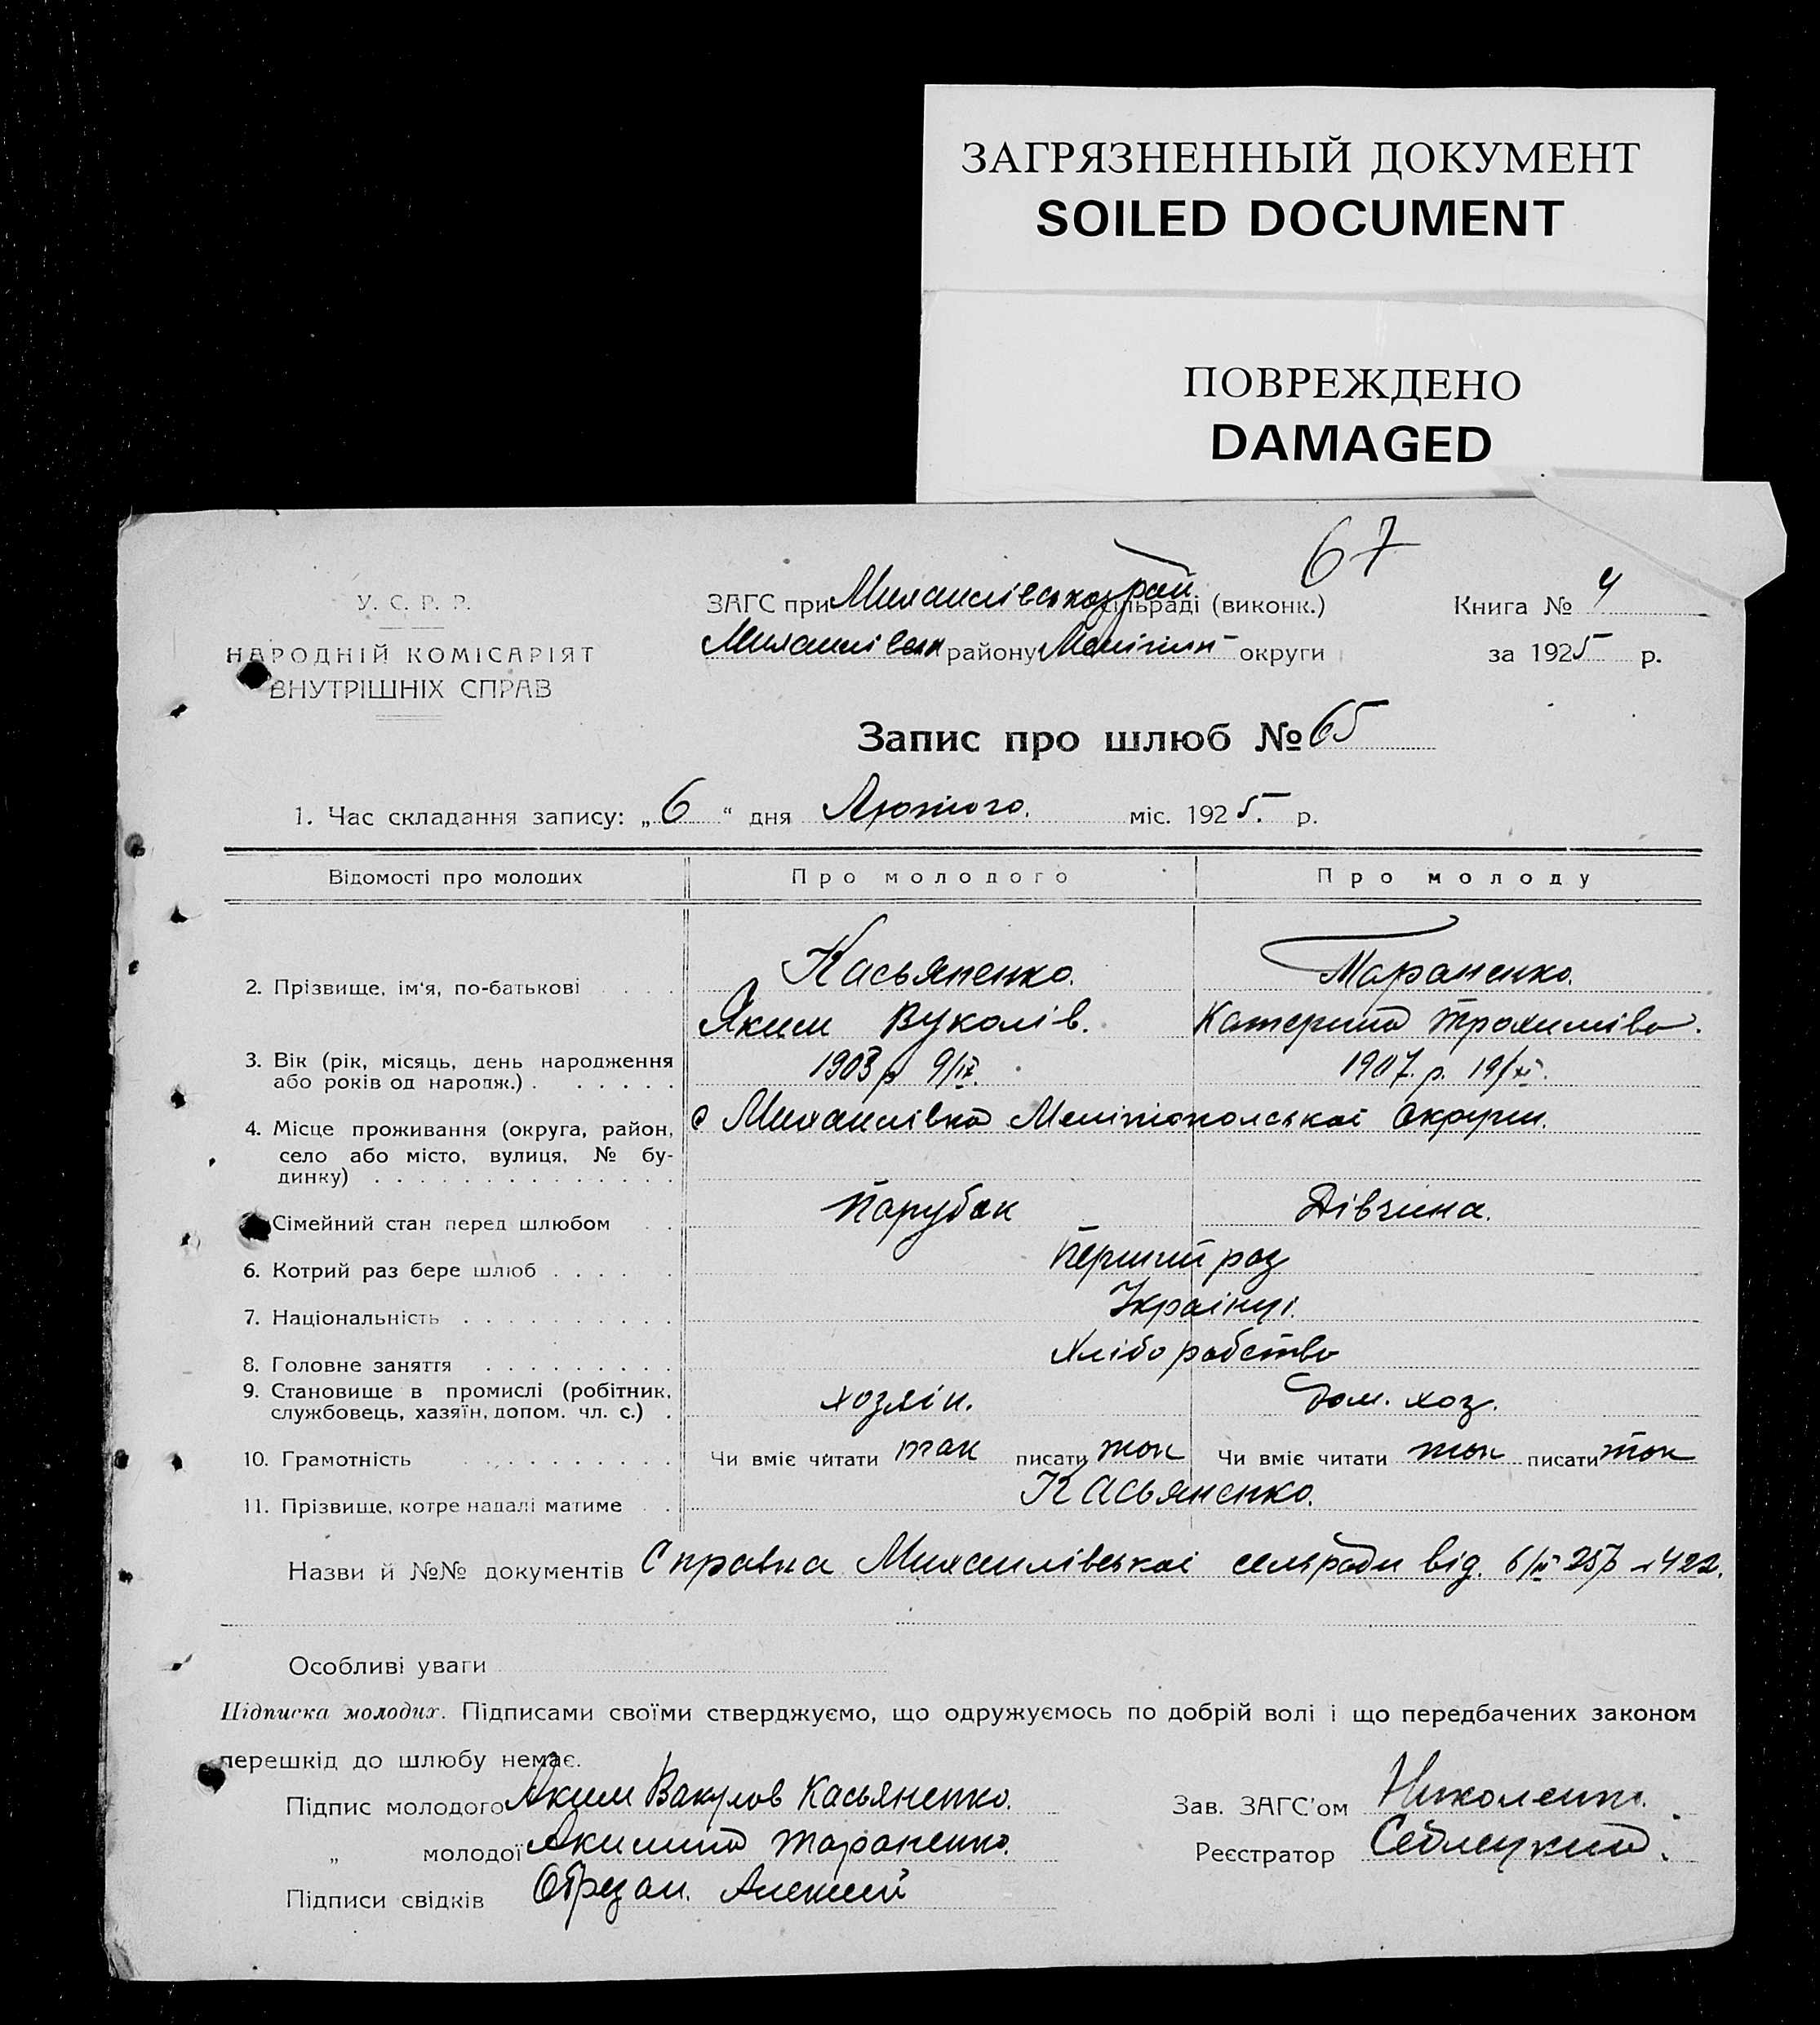 ЗАГРЯЗНЕННЫЙ ДОКУМЕНТ
SOILED DOCUMENT
ПОВРЕЖДЕНО
DAMAGED
67
У. С. Р. Р.
НАРОДНІЙ КОМІСАРІЯТ
ВНУТРІШНІХ СПРАВ
ЗАГС при Михаилівськом рай сільраді (виконк.)
Михаилівськ району Мелітип округи
Книга № 4
за 1925 р.
Запис про шлюб № 65
1. Час складання запису: „ 6 “ дня Лютого. міс. 1925. р.
Відомості про молодих Про молодого Про молоду
2. Прізвище, ім'я, по-батькові . . . . Касьяненко. Тараненко.
Яким Вуколів. Катерина Трохимівна.
3. Вік (рік, місяць, день народження 1903 р 9/IX. 1907 р. 19/XI.
або років од народж.) . . . . . .
4. Місце проживання (округа, район, с Михаилівка Мелітопольскоі Округи.
село або місто, вулиця, № бу-
динку) . . . . . . . . . . . . . .
Сімейний стан перед шлюбом . . Парубок Дівчина.
6. Котрий раз бере шлюб . . . . . Перший раз
7. Національність . . . . . . . . . . Украінці.
8. Головне заняття . . . . . . . . . Хліборобство
9. Становище в промислі (робітник, хозяін. Дом. хоз.
службовець, хазяїн, допом. чл. с.) .
10. Грамотність . . . . . . . . . . Чи вміє читати так писати так Чи вміє читати так писати так
11. Прізвище, котре надалі матиме . . Касьяненко.
Назви й №№ документів Справка Михаилівськоі сельради від. 6/II 25р 422.
Особливі уваги
Підписка молодих. Підписами своїми стверджуємо, що одружуємось по добрій волі і що передбачених законом
перешкід до шлюбу немає.
Підпис молодого Аким Вакулов Касьяненко.
„ молодої Акилина Тараненко.
Підписи свідків Алексей
Зав. ЗАГС'ом Николенко.
Реєстратор